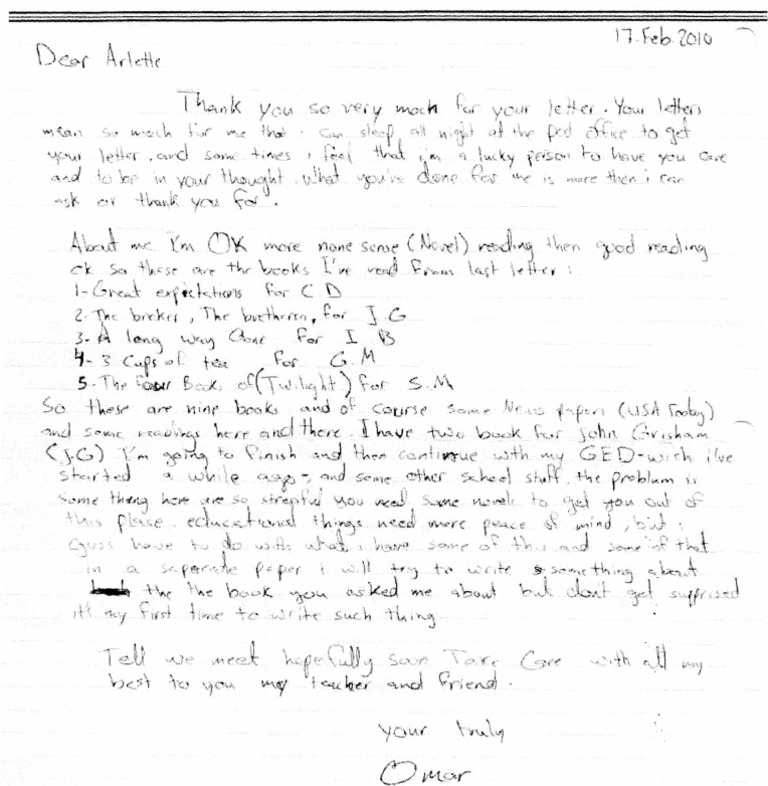 17. Feb. 2010
Dear Arlette
Thank you so very much for your letter. Your letters
mean so much for me that i can sleep all night at the post office to get
your letter, and some times i feel that i'm a lucky person to have you care
and to be in your thought. What you've done for me is more then i can
ask or thank you for.
About me I'm OK more none sense (Novel) reading then good reading
ok so these are the books I've read from last letter:
1- Great expectations for C D
2- The broker, The bretheren, for J. G
3- A long way Gone for I B
4- 3 Cups of tea for G. M
5- The four Books of (Twilight) for S. M
So these are nine books and of course some News papers (USA Today)
and some readings here and there. I have two book for John Grisham
(J.G) I'm going to finish and then continue with my GED - wich i've
started a while ago -, and some other school stuff. the problem is
some thing here are so stresful you need some novels to get you out of
this place. educational things need more peace of mind, but i
guss have to do with what i have some of this and some of that
in a saparate paper i will try to write something about
the the book you asked me about but don't get supprised
it's my first time to write such thing
Tell we meet hopefully soon Take Care with all my
best to you my teacher and friend.
your truly
Omar